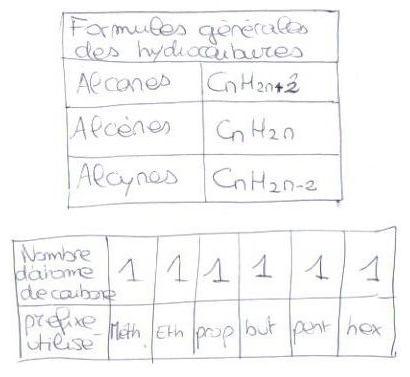 Formules générales
des hydrocarbures
Alcanes CnH2n+2
Alcènes CnH2n
Alcynes CnH2n-2
Nombre
d'atome
de carbone 1 1 1 1 1 1
préfixe
utilisé Méth. Eth prop but pent hex